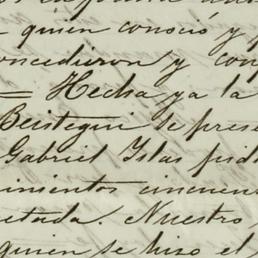 quien conoció y
concedieron y con
= Hecha ya la
Beistegui se prese
Gabriel Islas pidi
imientos cincuen
etada. Nuestro,
quien se hizo el